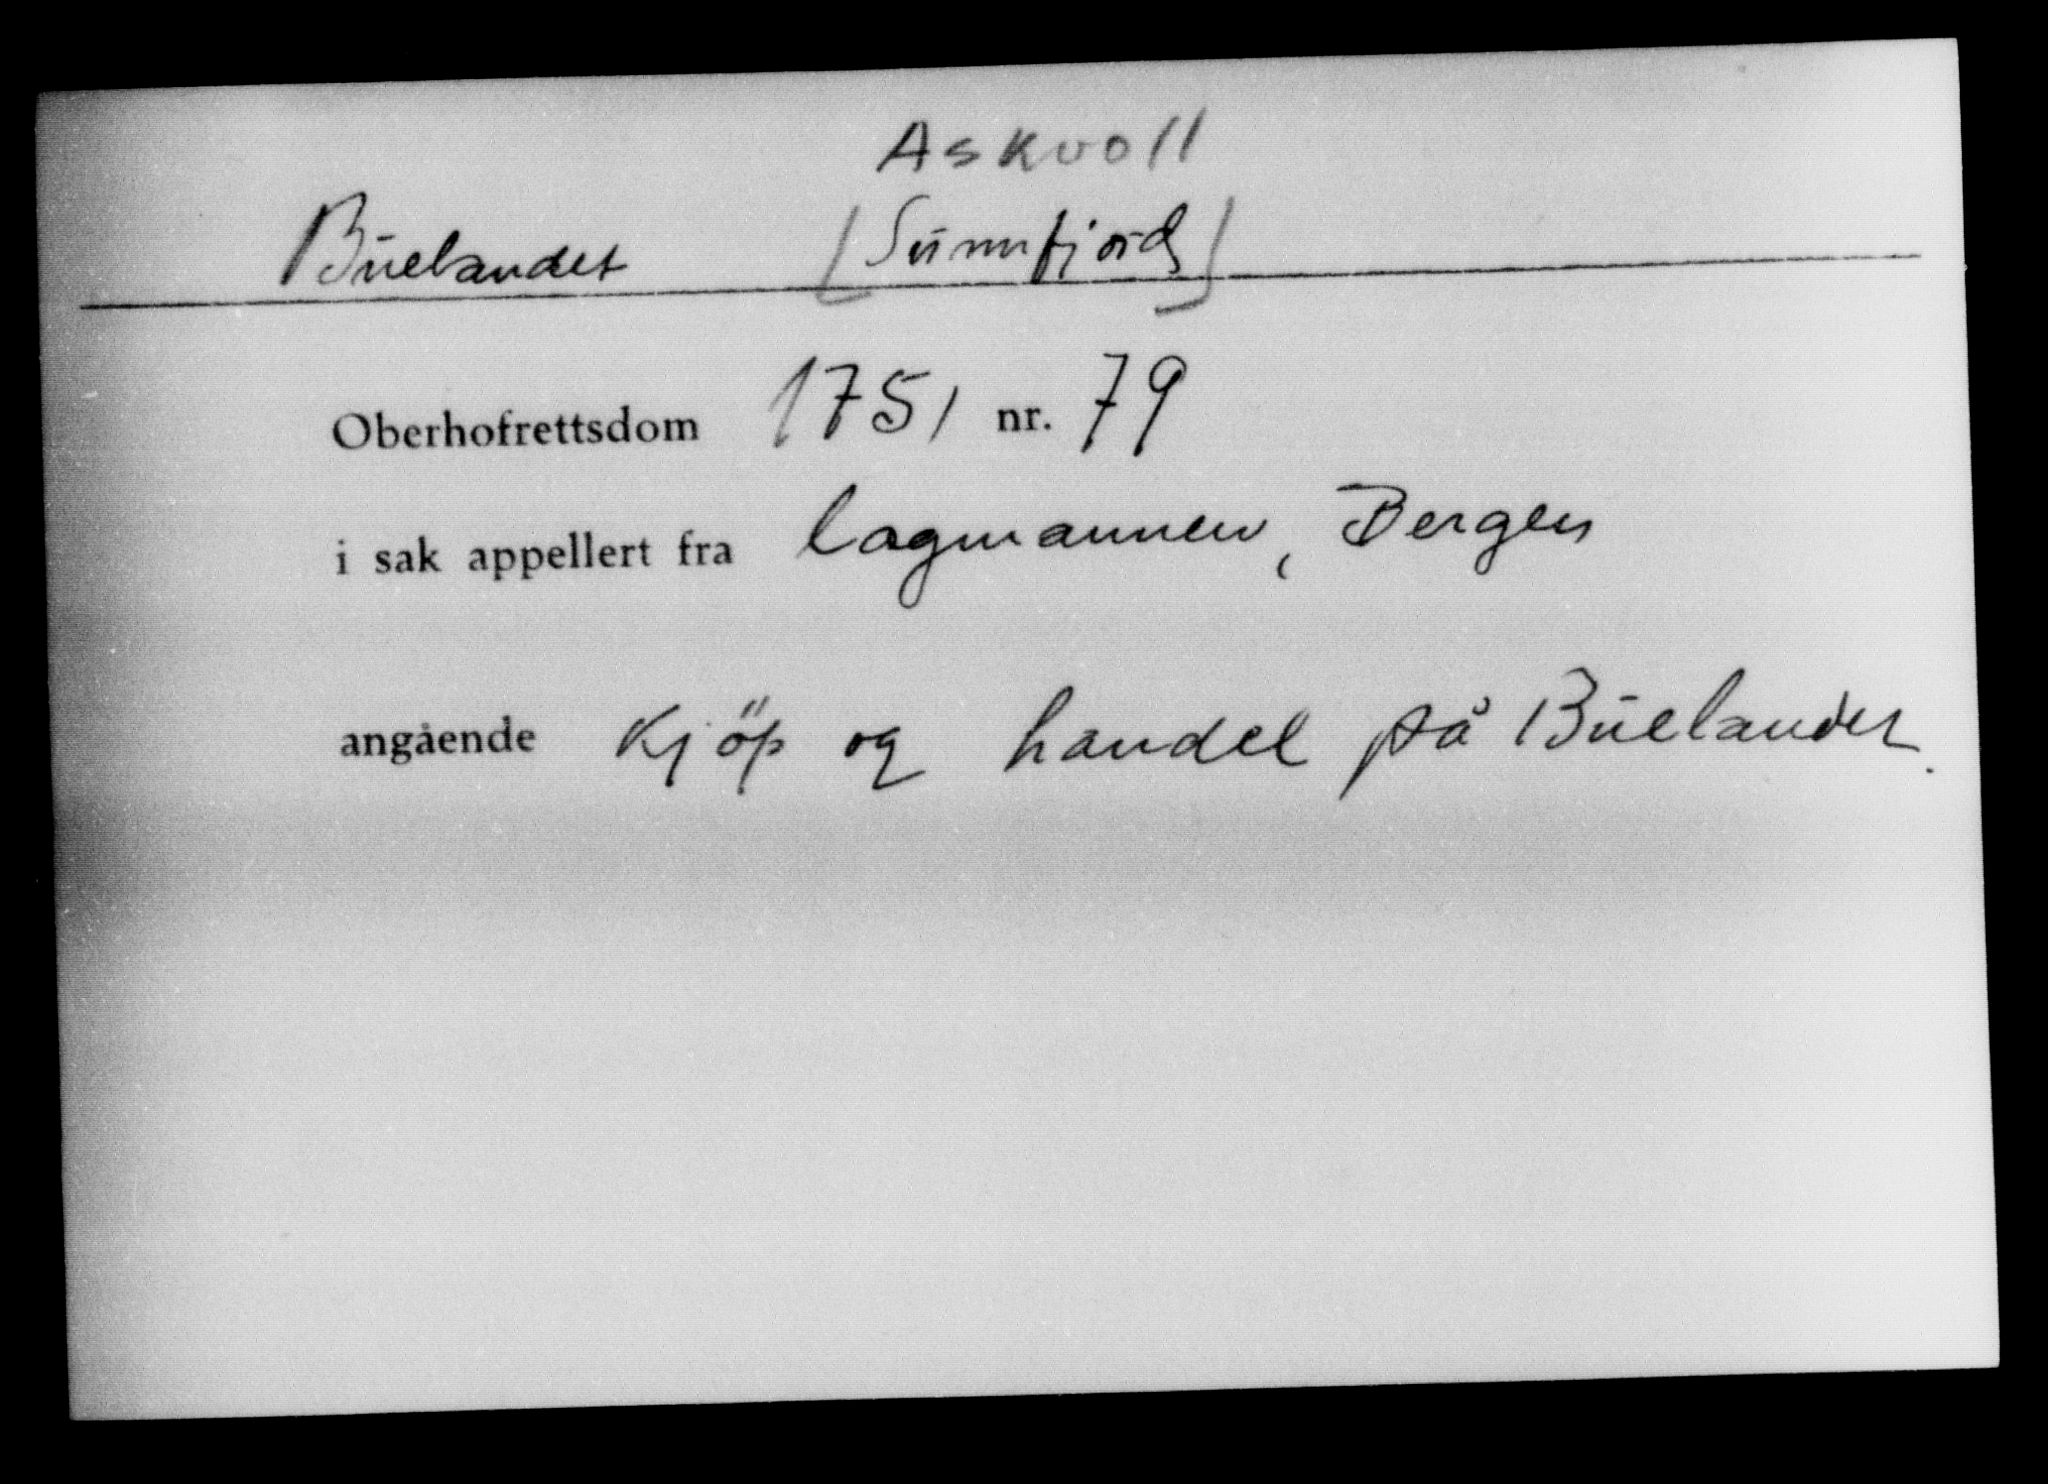 Askvoll
Buelandet [Sunnfjord]
Oberhofrettsdom 1751 nr. 79
i sak appellert fra lagmannen, Bergen
angående Kjöp og handel på Buelandet.